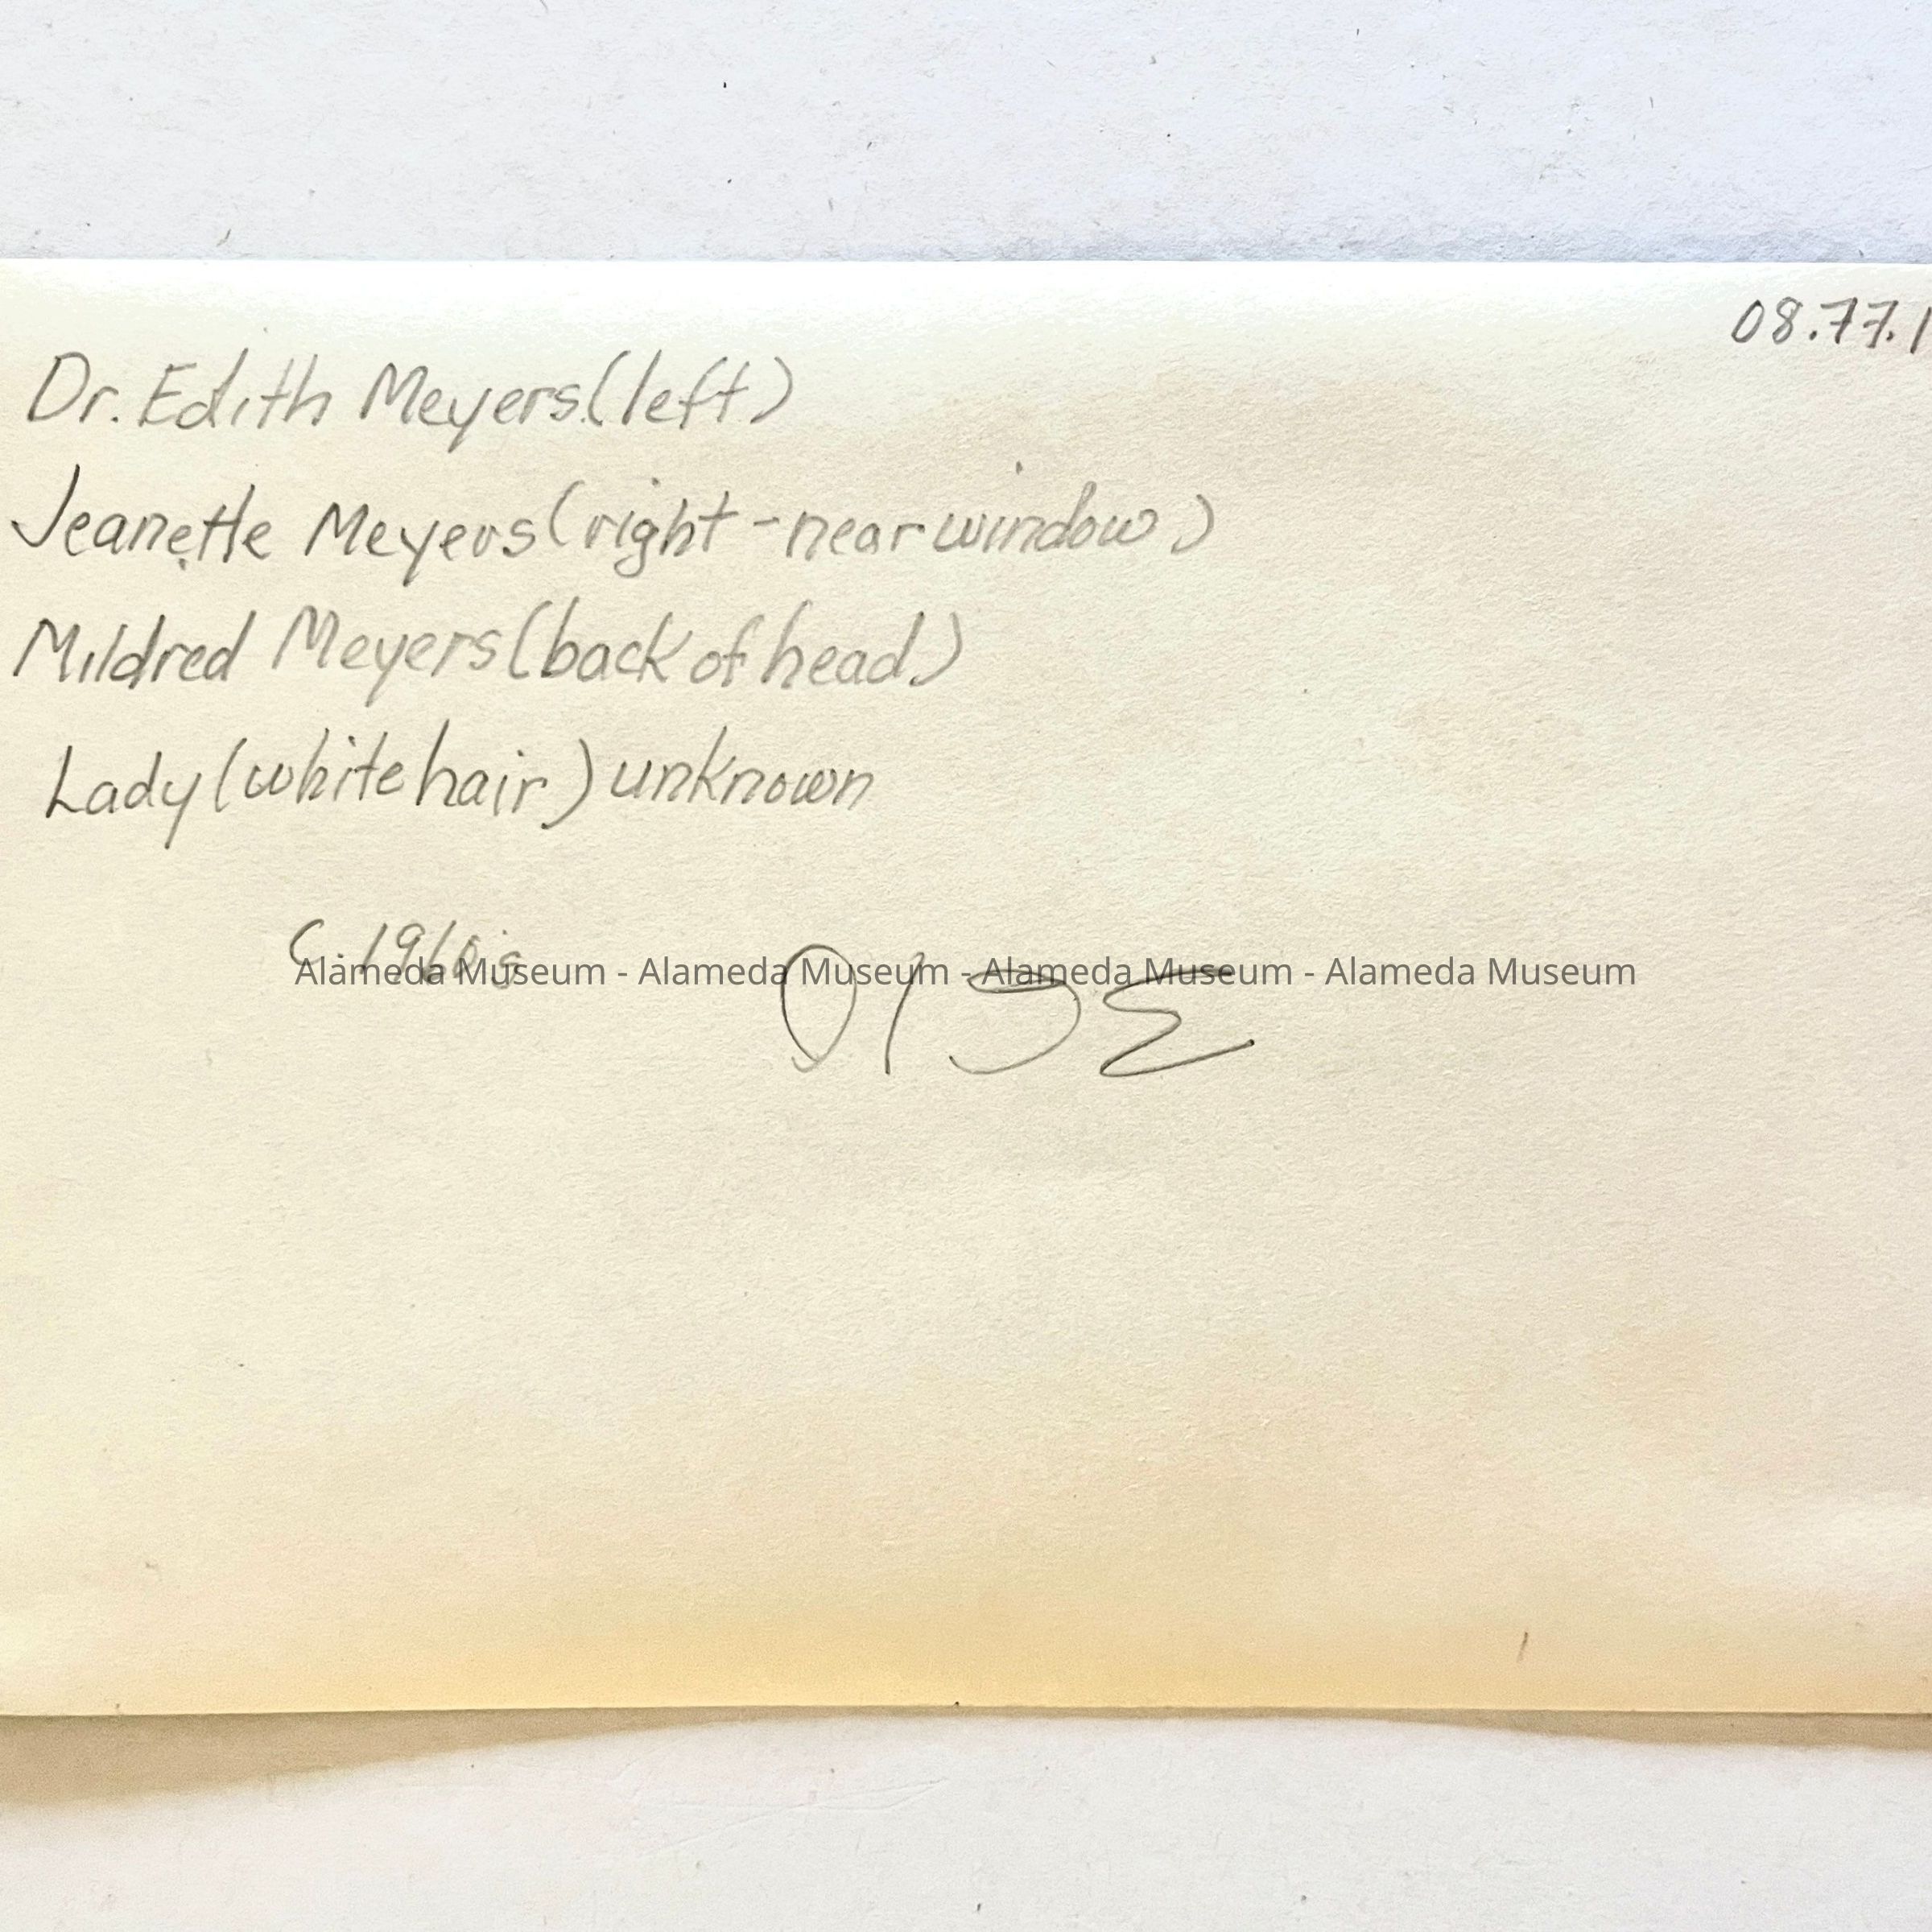 08.77.1
Dr. Edith Meyers (left)
Jeanette Meyers (right - near window)
Mildred Meyers (back of head)
Lady (white hair) unknown
C. 1960's
Alameda Museum - Alameda Museum - Alameda Museum - Alameda Museum